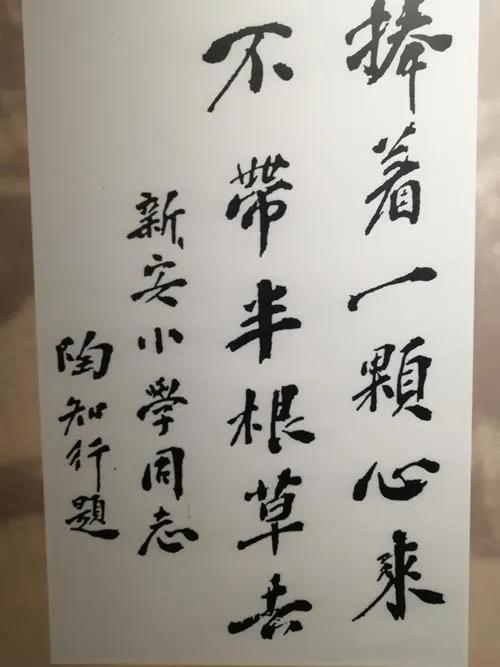 捧着一顆心来
不帶半根草去
新安小學同志
陶知行題